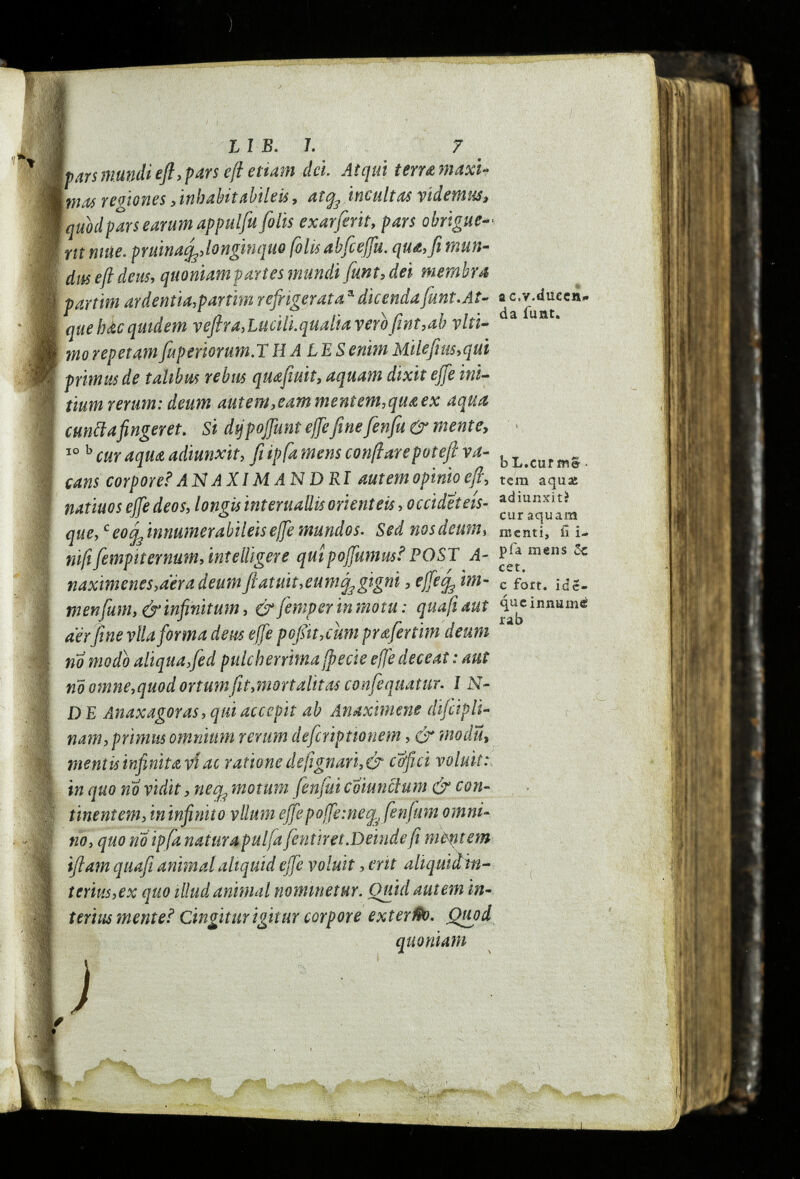 LIB. I. 7
pars mundi eſt, pars eſt etiam dei. Atqui terræ maxi-
mas regiones, inhabitabileis, atq; incultas videmus,
quòd pars earum appulſu ſolis exarſerit, pars obrigue-
rit niue. pruinaq;, longinquo ſolis abſceſſu. quæ, ſi mun-
dus eſt deus, quoniam partes mundi ſunt, dei membra
partim ardentia, partim refrigerata ᵃ dicenda ſunt. At-
que hæc quidem veſtra, Lucili. qualia verò ſint, ab vlti-
mo repetam ſuperiorum. THALES enim Mileſius, qui
primus de talibus rebus quæſiuit, aquam dixit eſſe ini-
tium rerum: deum autem, eam mentem, quæ ex aqua
cuncta fingeret. Si dij poſſunt eſſe ſine ſenſu & mente,
10 ᵇ cur aquæ adiunxit, ſi ipſa mens conſtare poteſt va-
cans corpore? ANAXIMANDRI autem opinio eſt,
natiuos eſſe deos, longis interuallis orienteis, occidēteis-
que, ᶜ eoq; innumerabileis eſſe mundos. Sed nos deum,
niſi ſempiternum, intelligere qui poſſumus? POST A-
naximenes, aëra deum ſtatuit, eumq; gigni, eſſeq; im-
menſum, & infinitum, & ſemper in motu: quaſi aut
aër ſine vlla forma deus eſſe poſsit, cùm præſertim deum
nō modò aliqua, ſed pulcherrima ſpecie eſſe deceat: aut
nō omne, quod ortum ſit, mortalitas conſequatur. IN-
DE Anaxagoras, qui accepit ab Anaximene diſcipli-
nam, primus omnium rerum deſcriptionem, & modū,
mentis infinitæ vi ac ratione deſignari, & cōfici voluit:
in quo nō vidit, neq; motum ſenſui cōiunctum & con-
tinentem, in infinito vllum eſſe poſſe: neq; ſenſum omni-
no, quo nō ipſa natura pulſa ſentiret. Deinde ſi mentem
iſtam quaſi animal aliquid eſſe voluit, erit aliquid in-
terius, ex quo illud animal nominetur. Quid autem in-
terius mente? Cingitur igitur corpore externo. Quod
quoniam
a c.v. ducen-
da ſunt.
b L. cur mē-
tem aquæ
adiunxit?
cur aquam
menti, ſi i-
pſa mens &
cet.
c fort. idē-
que innume
rab